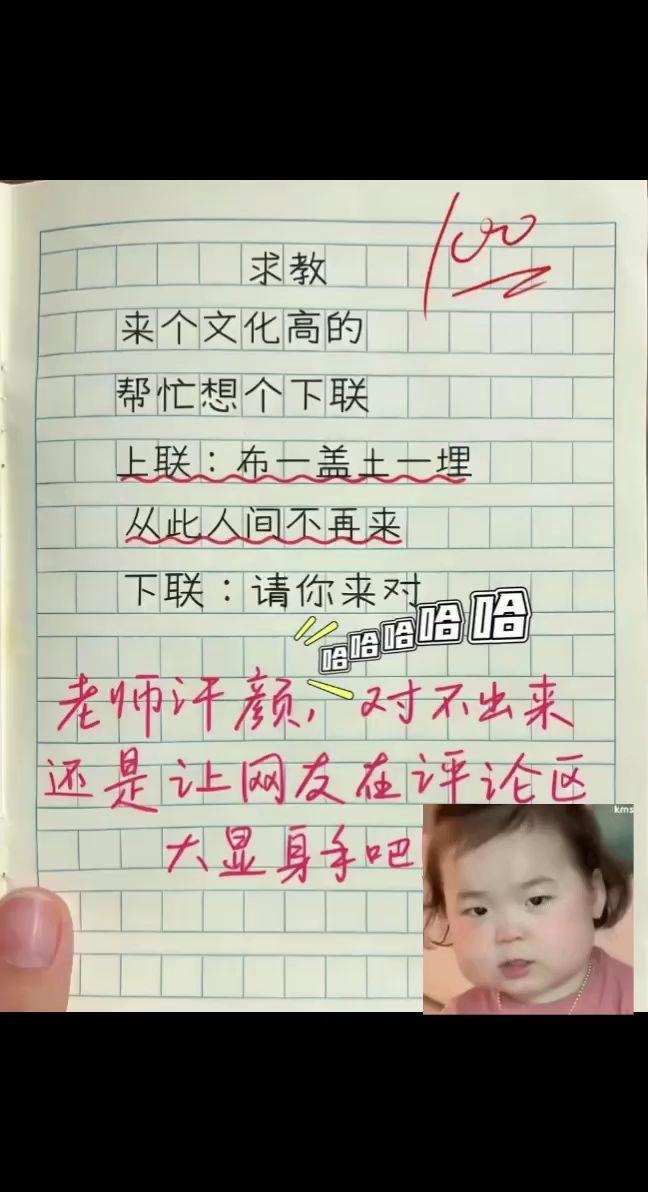 100
求教
来个文化高的
帮忙想个下联
上联：布一盖土一埋
从此人间不再来
下联：请你来对
哈哈哈哈哈
老师汗颜，对不出来
还是让网友在评论区
大显身手吧
kms